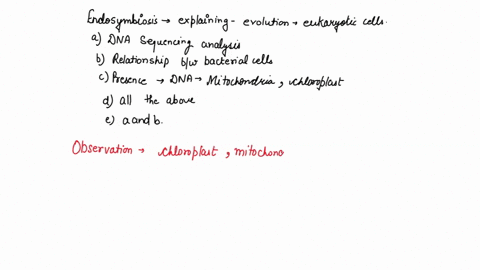 Endosymbiosis → explaining - evolution → eukaryotic cells.
a) DNA Sequencing analysis
b) Relationship b/w bacterial cells
c) Presence → DNA → Mitochondria, chloroplast
d) all the above
e) a and b.
Observation → chloroplast, mitochono